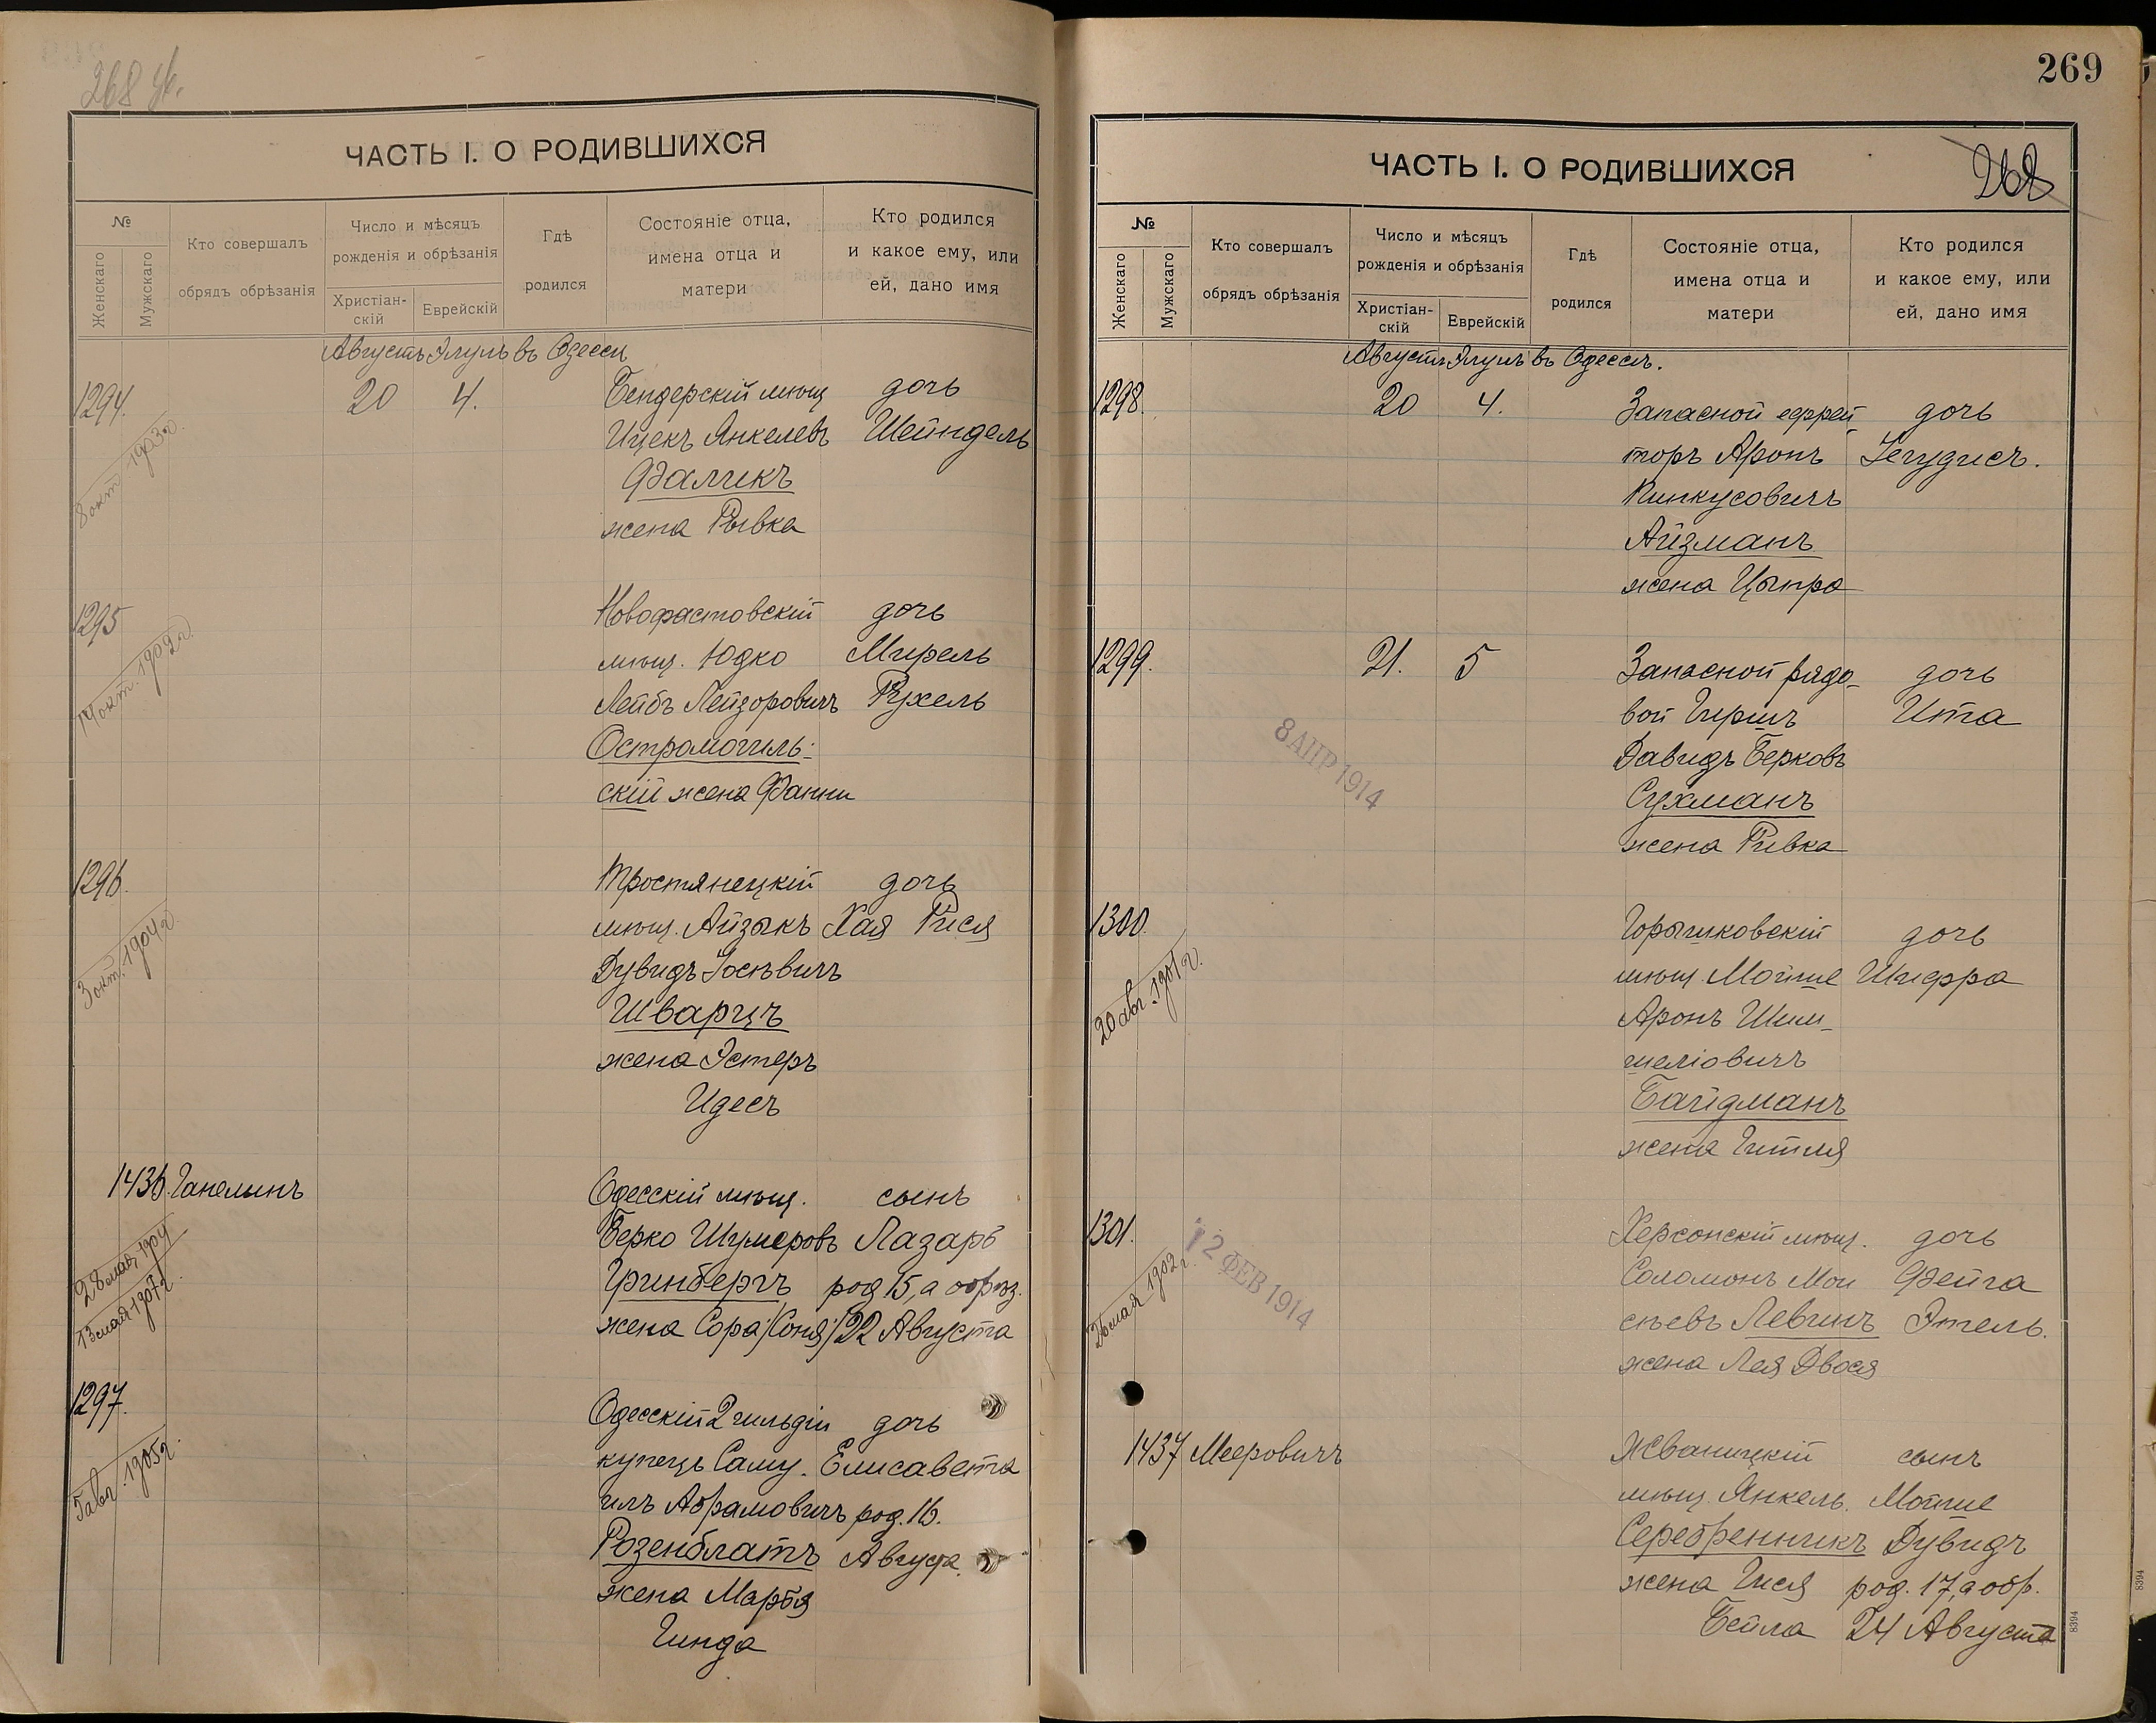 268 об.
ЧАСТЬ I. О РОДИВШИХСЯ
№
Женскаго
Мужскаго
Кто совершалъ
обрядъ обрѣзанія
Число и мѣсяцъ
рожденія и обрѣзанія
Христіан-
скій
Еврейскій
Гдѣ
родился
Состояніе отца,
имена отца и
матери
Кто родился
и какое ему, или
ей, дано имя
Августъ Элулъ въ Одессѣ
1294. 20 4. Бендерскій мѣщ дочь
Ицекъ Янкелевъ Шейндель
Фаликъ
жена Рывка
8 окт 1903 г.
1295 Новофастовскій дочь
мѣщ. Юдко Мирель
Лейбъ Лейзоровичъ Рухель
Остромогиль-
скій жена Фанни
14 окт. 1902 г.
1296. Тростянецкій дочь
мѣщ. Айзыкъ Хая Рися
Дувидъ Іосевичъ
Шварцъ
жена Эстеръ
Идесъ
3 окт. 1904 г.
1436. Ганелинъ Одесскій мѣщ. сынъ
Берко Шумеровъ Лазарь
Гринбергъ род 15, а обрѣз.
жена Сора /Соня/ 22 Августа
28 мая 1904
13 мая 1907 г.
1297. Одесскій 2 гильдіи дочь
купецъ Саму- Елисавета
илъ Абрамовичъ род. 16.
Розенблатъ Августа.
жена Марья
Гинда
авг. 1905 г.
269
ЧАСТЬ I. О РОДИВШИХСЯ
268
№
Женскаго
Мужскаго
Кто совершалъ
обрядъ обрѣзанія
Число и мѣсяцъ
рожденія и обрѣзанія
Христіан-
скій
Еврейскій
Гдѣ
родился
Состояніе отца,
имена отца и
матери
Кто родился
и какое ему, или
ей, дано имя
Августъ Элулъ въ Одессѣ.
1298. 20 4. Запасной ефрей- дочь
торъ Аронъ Іегудисъ.
Пинкусовичъ
Айзманъ
жена Ципра
1299. 21. 5 Запасной рядо- дочь
вой Гиршъ Ита
Давидъ Берковъ
Сухманъ
жена Ривка
8 АПР 1914
1300. Горышковскій дочь
мѣщ. Мойше Шифра
Аронъ Шим-
шеліовичъ
Байдманъ
жена Гитля
20 авг. 1901 г.
1301. Херсонскій мѣщ. дочь
Соломонъ Мои Фейга
сѣевъ Левинъ Этель.
жена Лея Двося
мая 1902 г.
12 ФЕВ 1914
1437 Мееровичъ Жванецкій сынъ
мѣщ. Янкель. Мойше
Серебренникъ Дувидъ
жена Гися род. 17, а обр.
Бейла 24 Августа
8394
8394